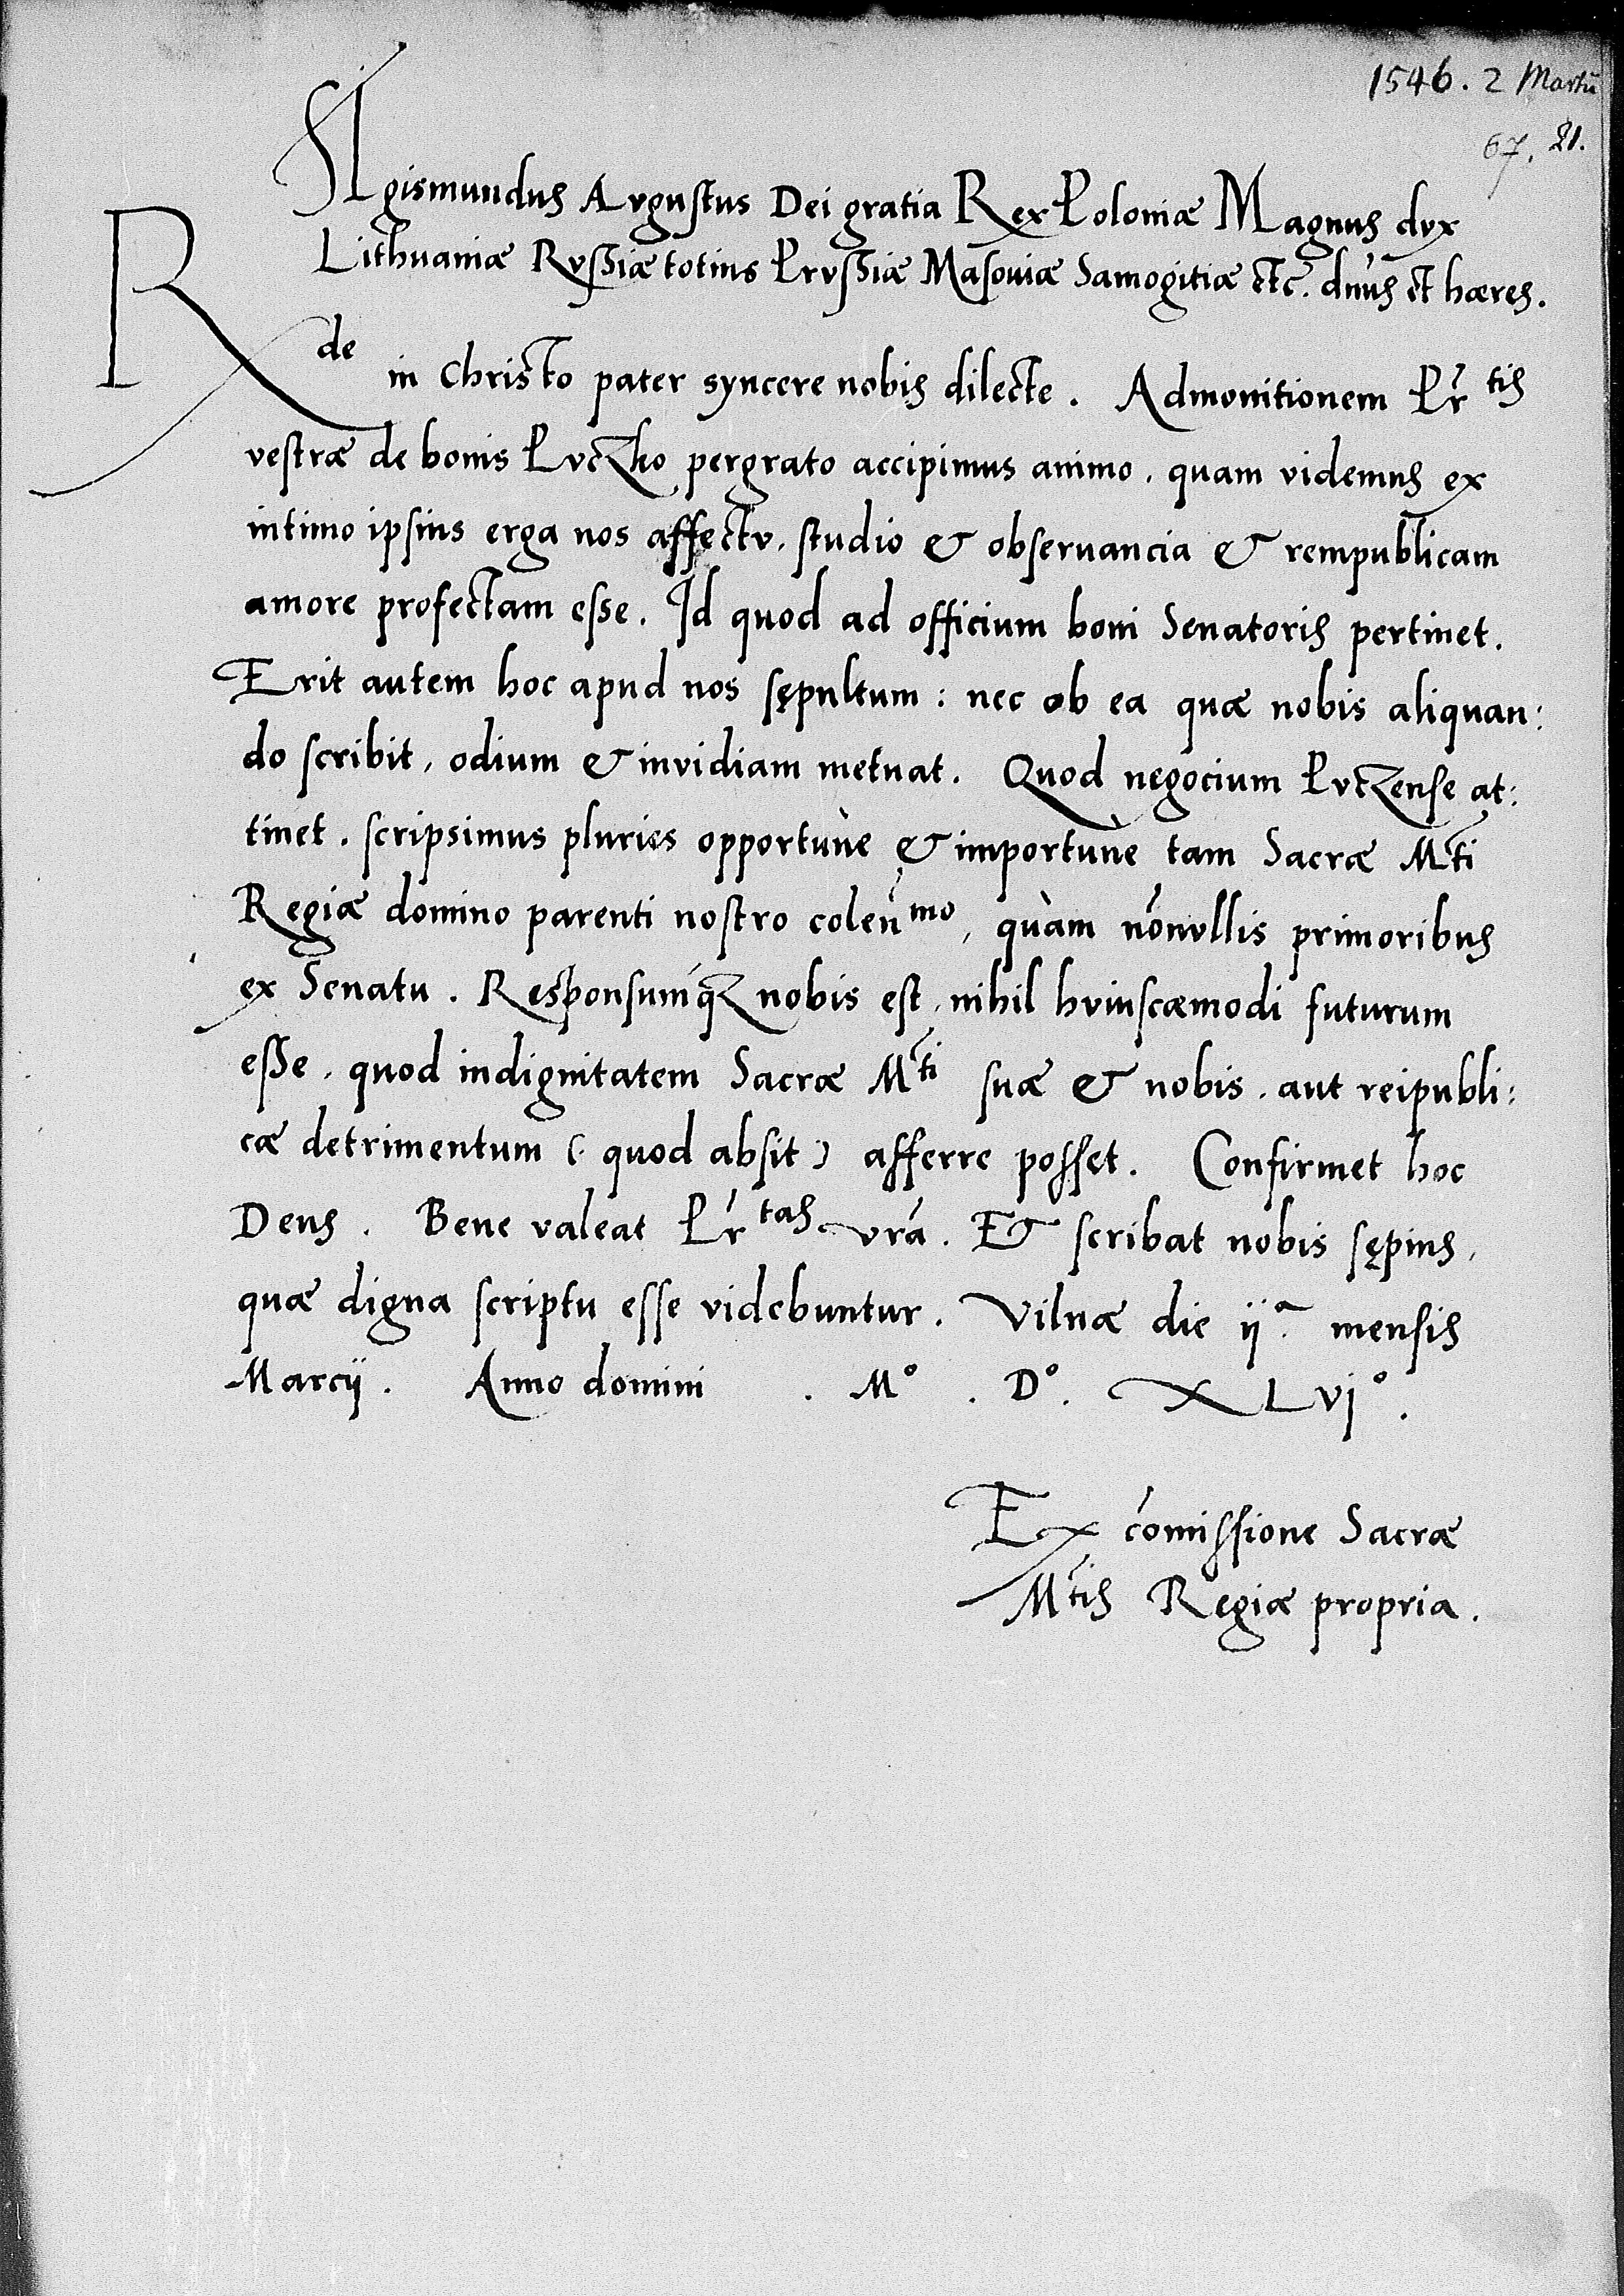 1546. 2 Martii
67. 21.
Sigismundus Avgustus Dei gratia Rex Poloniæ Magnus dvx
Lithuaniæ Rvssiæ totius Prvssiæ Masouiæ Samogitiæ etc. dnũs et hæres.
R de in Christo pater syncere nobis dilecte. Admonitionem Pr̃ tis
vestræ de bonis Pvczko pergrato accipimus animo, quam videmus ex
intimo ipsius erga nos affectv, studio & obseruancia & rempublicam
amore profectam esse. Id quod ad officium boni Senatoris pertinet.
Erit autem hoc apud nos sępultum: nec ob ea quæ nobis aliquan:
do scribit, odium & invidiam metuat. Quod negocium Pvczense at:
tinet, scripsimus pluries opportunè & importunè tam Sacræ Mti
Regiæ domino parenti nostro colen̄ mo, quàm nõnvllis primoribus
ex Senatu. Responsumq́z nobis est, nihil hviuscæmodi futurum
esse, quod indignitatem Sacræ Mti suæ & nobis, aut reipubli:
cæ detrimentum (: quod absit) afferre posset. Confirmet hoc
Deus. Bene valeat Pr̃ tas vrã. Et scribat nobis sępius,
quæ digna scriptu esse videbuntur. Vilnæ die ij a. mensis
Marcij. Anno domini . M° . D°. XLvj°.
Ex cõmissione Sacræ
Mtis Regiæ propria.